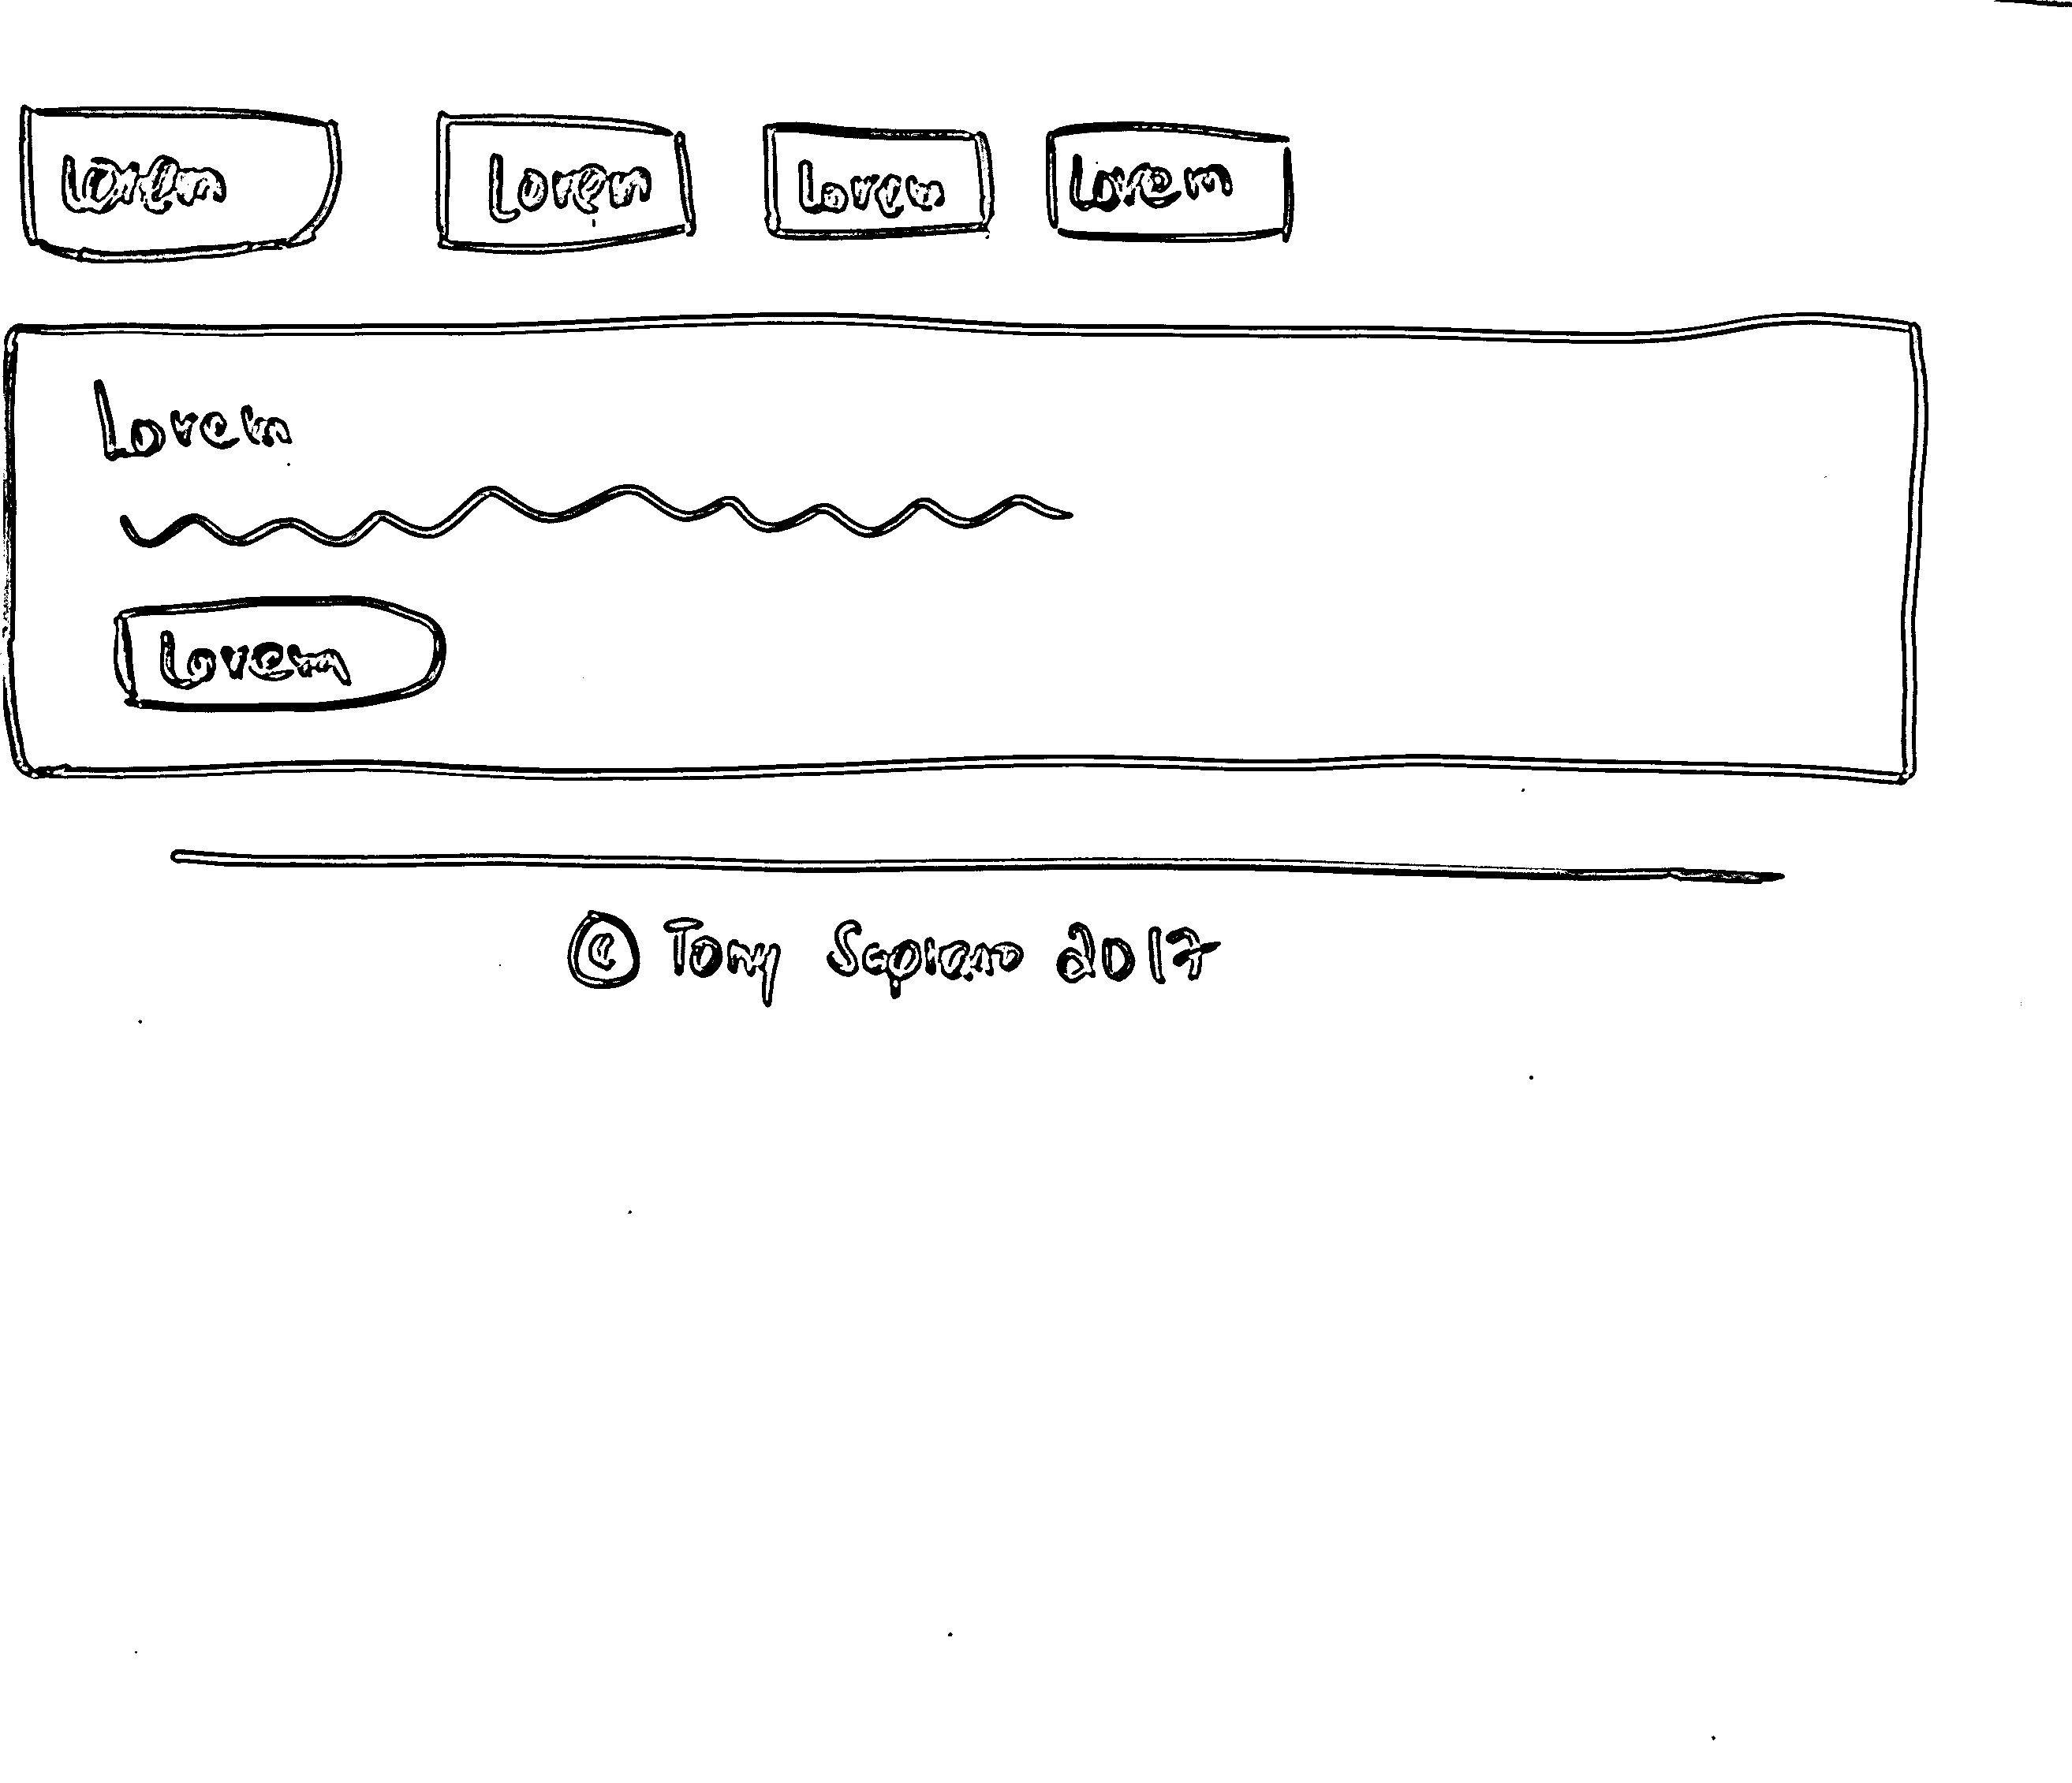 Lorem Lorem Lorem Lorem
Lorem
Lorem
© Tony Soprano 2017